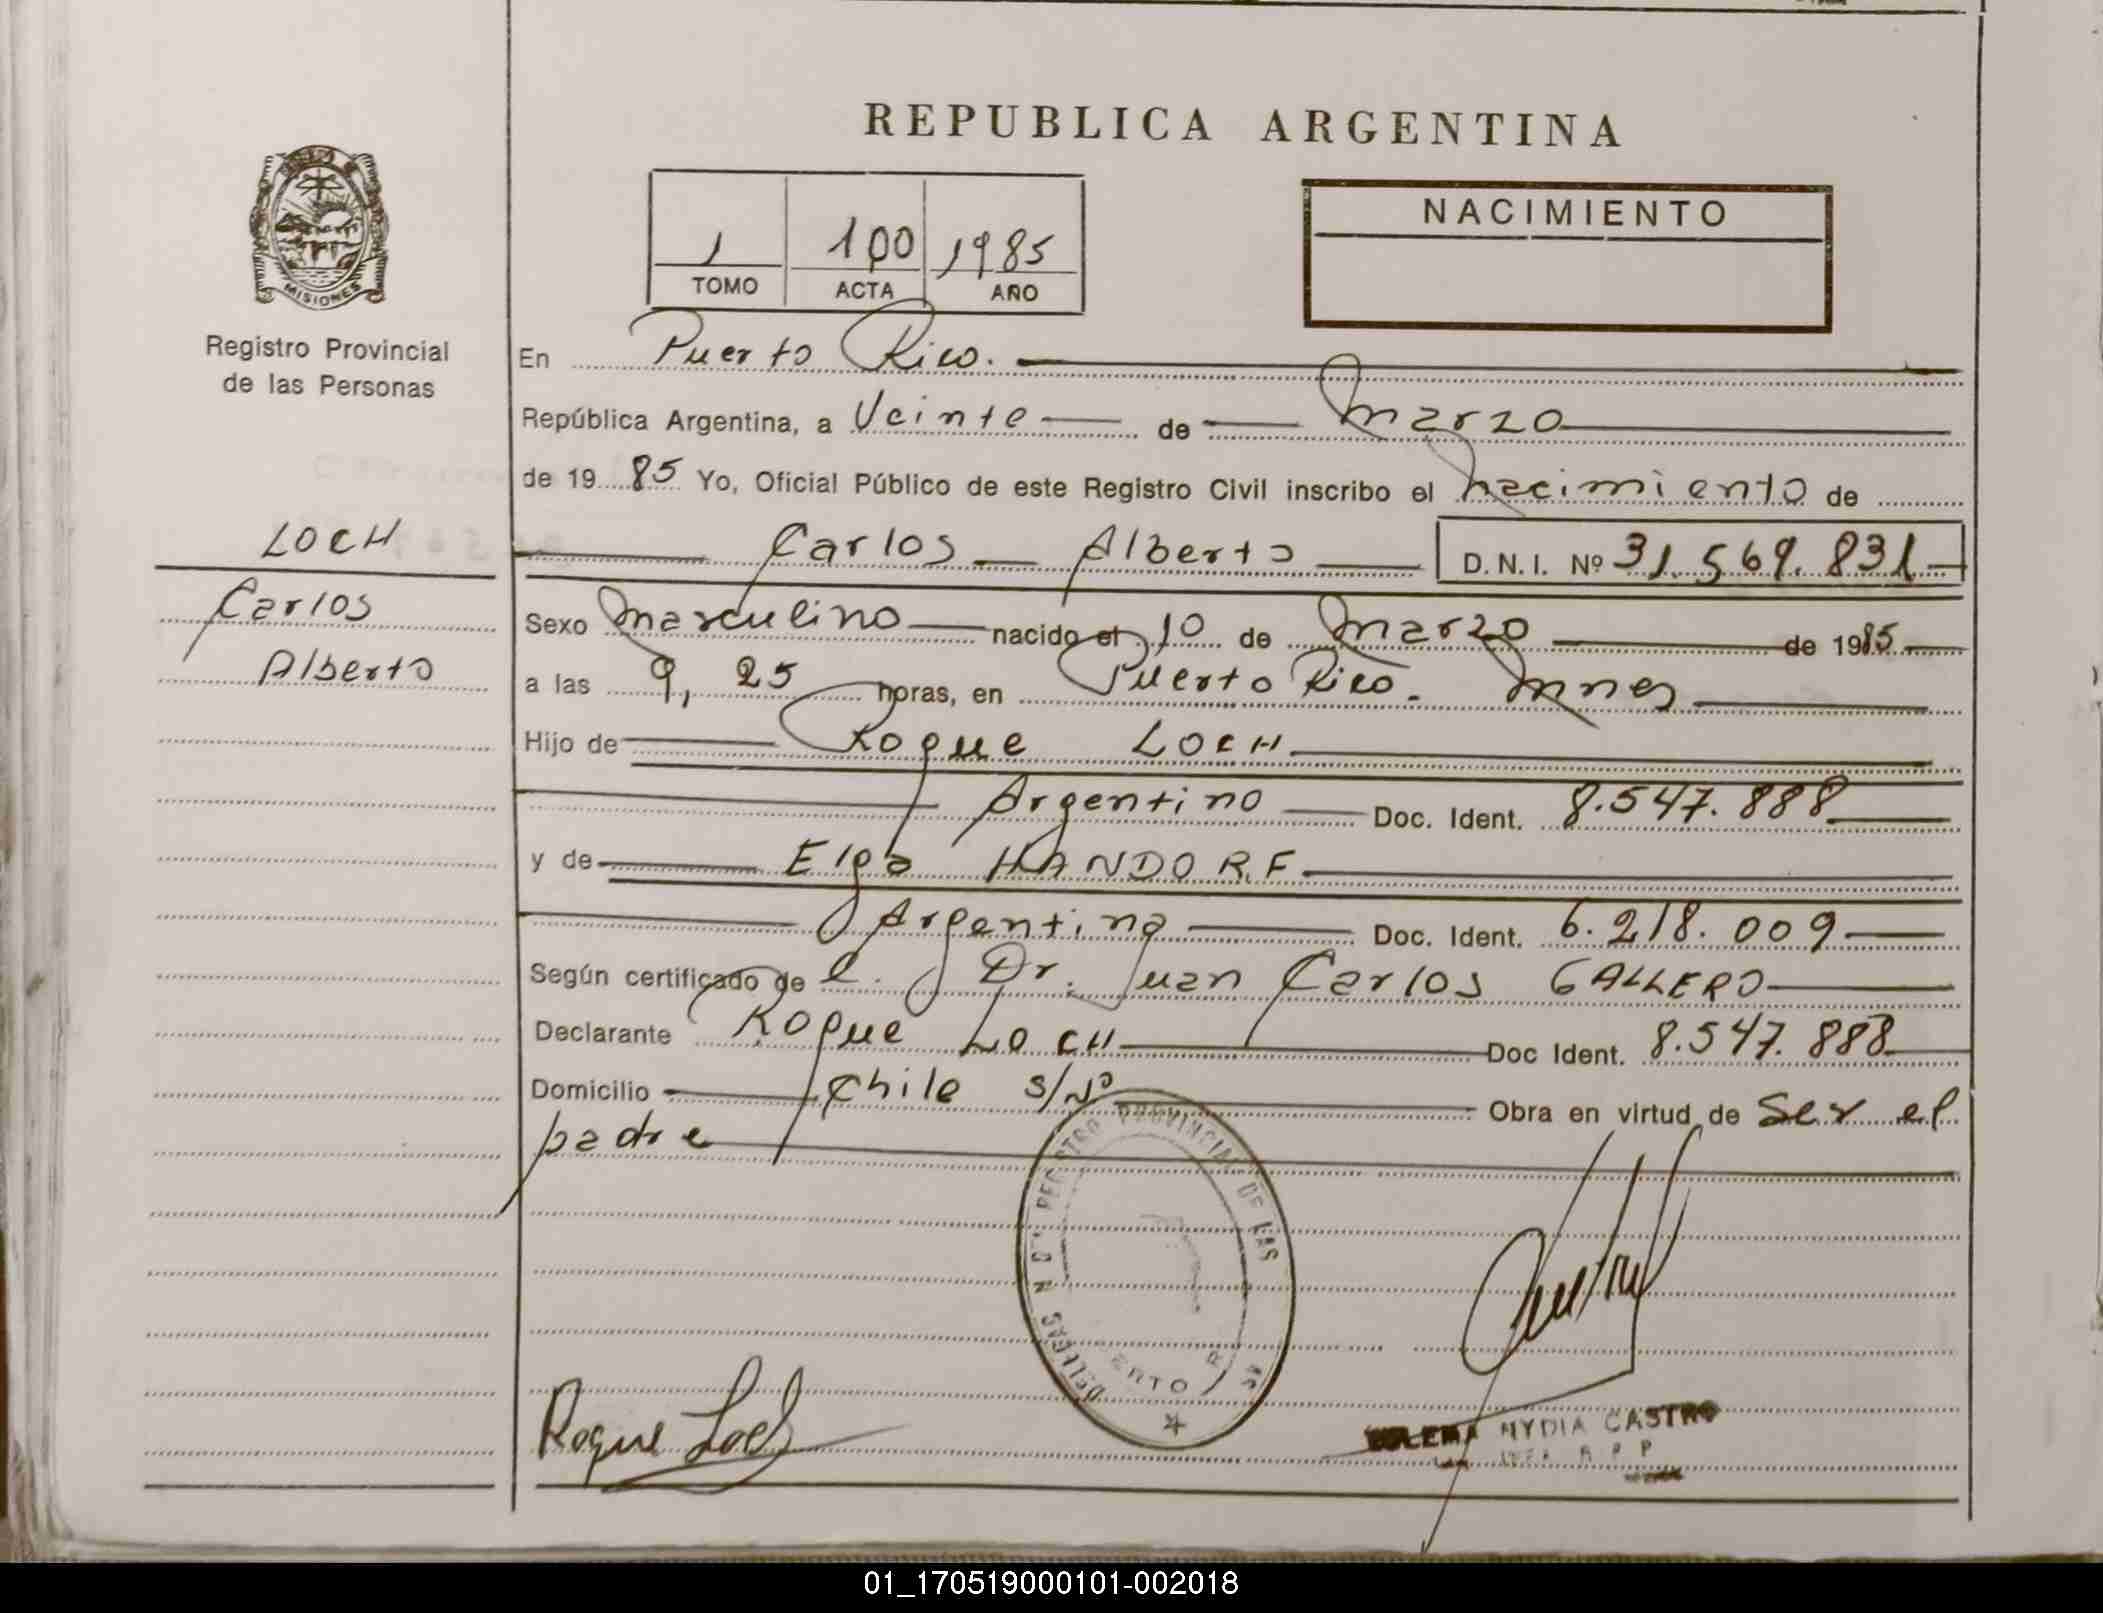 REPUBLICA ARGENTINA
1 100 1985
TOMO ACTA AÑO
NACIMIENTO
MISIONES
Registro Provincial
de las Personas
LOCH
Carlos
Alberto
En Puerto Rico.
República Argentina, a Veinte de Marzo
de 1985 Yo, Oficial Público de este Registro Civil inscribo el nacimiento de
Carlos Alberto D.N.I. Nº 31.569.831
Sexo Masculino nacido el 10 de Marzo de 1985
a las 9,25 horas, en Puerto Rico. Mnes
Hijo de Roque LOCH
Argentino Doc. Ident. 8.547.888
y de Elga HANDORF
Argentina Doc. Ident. 6.218.009
Según certificado de l. Dr. Juan Carlos GALLERO
Declarante Roque LOCH Doc Ident. 8.547.888
Domicilio Chile s/Nº Obra en virtud de Ser el
padre
REGISTRO PROVINCIAL DE LAS
Roque Loch
NYDIA CASTRO
01_170519000101-002018